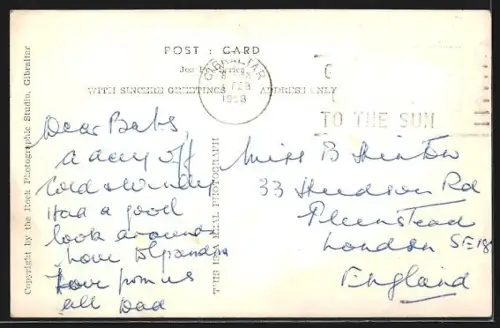 POST : CARD
GIBRALTAR
FEB
1958
WITH SINCERE GREETINGS
ADDRESS ONLY
TO THE SUN
Copyright by the Rock Photographic Studio, Gibraltar
THIS IS A REAL PHOTOGRAPH
Dear Babs,
a day off
Cold & windy
Had a good
look around
Love to Grandpa
Love from us
all Dad
Miss B Hinton
33 Hudson Rd
Plumstead
London SE18
England